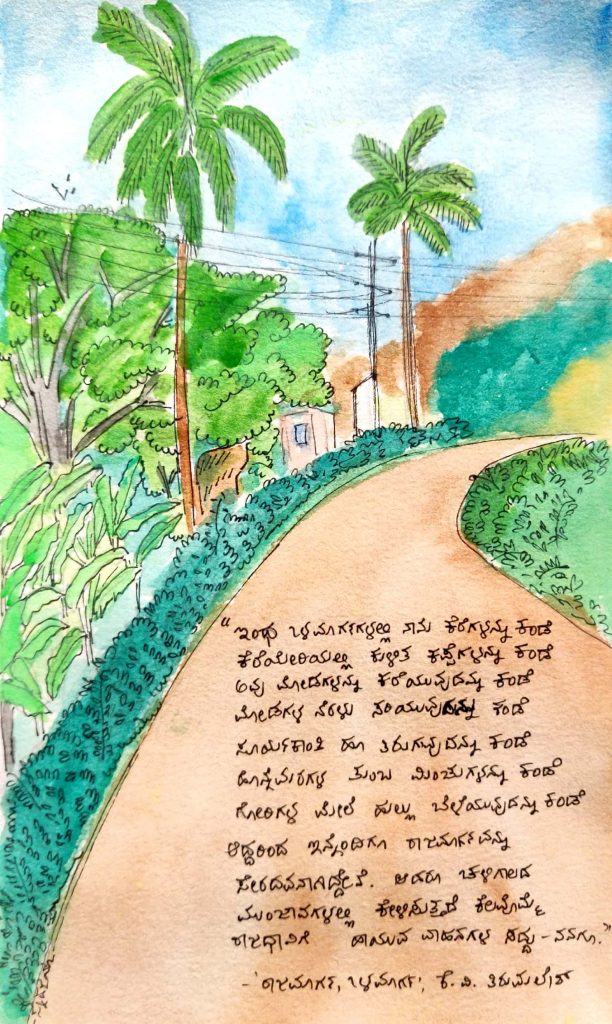 “ಇಂಥ ಒಳಮಾರ್ಗಗಳಲ್ಲಿ ನಾನು ಕೆರೆಗಳನ್ನು ಕಂಡೆ
ಕೆರೆಯೇರಿಯಲ್ಲಿ ಕುಳಿತ ಕಪ್ಪೆಗಳನ್ನು ಕಂಡೆ
ಅವು ಮೋಡಗಳನ್ನು ಕರೆಯುವುದನ್ನು ಕಂಡೆ
ಮೋಡಗಳ ನೆರಳು ಸರಿಯುವುದನ್ನು ಕಂಡೆ
ಸೂರ್ಯಕಾಂತಿ ಹೂ ತಿರುಗುವುದನ್ನು ಕಂಡೆ
ಹೊನ್ನೆಮರಗಳ ತುಂಬ ಮಿಂಚುಗಳನ್ನು ಕಂಡೆ
ಗೋರಿಗಳ ಮೇಲೆ ಹುಲ್ಲು ಬೆಳೆಯುವುದನ್ನು ಕಂಡೆ
ಆದ್ದರಿಂದ ಇನ್ನೆಂದಿಗೂ ರಾಜಮಾರ್ಗವನ್ನು
ಸೇರದವನಾಗಿದ್ದೇನೆ. ಆದರೂ ಚಳಿಗಾಲದ
ಮುಂಜಾವಗಳಲ್ಲಿ ಕೇಳಿಸುತ್ತದೆ ಕೆಲವೊಮ್ಮೆ
ರಾಜಧಾನಿಗೆ ಹಾಯುವ ವಾಹನಗಳ ಸದ್ದು - ನನಗೂ.”
-‘ರಾಜಮಾರ್ಗ, ಒಳಮಾರ್ಗ’, ಕೆ. ವಿ. ತಿರುಮಲೇಶ್